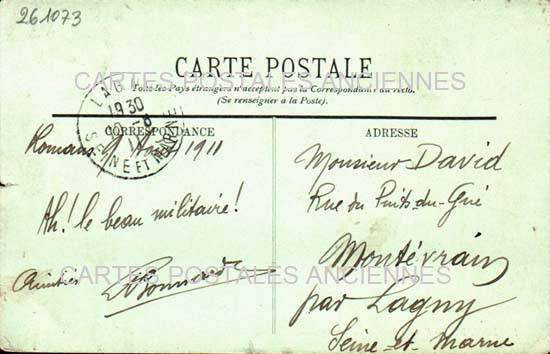 261073
CARTE POSTALE
Tous les Pays étrangers n'acceptent pas la Correspondance au recto.
(Se renseigner à la Poste).
CARTES POSTALES ANCIENNES
LAG
1930
SEINE ET MARNE
CORRESPONDANCE
Romans 9 Août 1911
Ah! le beau militaire!
Amitiés
ADRESSE
Monsieur David
Rue du Puits-du-Gué
Montévrain
par Lagny
Seine-et-Marne
CARTES POSTALES ANCIENNES